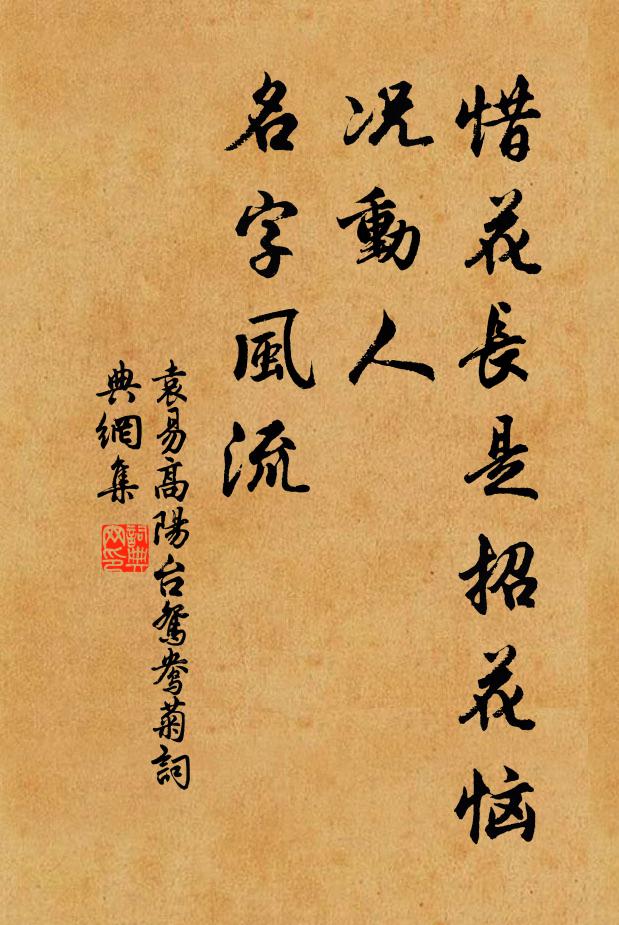 惜花長是招花恼
况動人
名字風流
袁易高陽台鴛鴦菊詞
典網集
詞典
网印